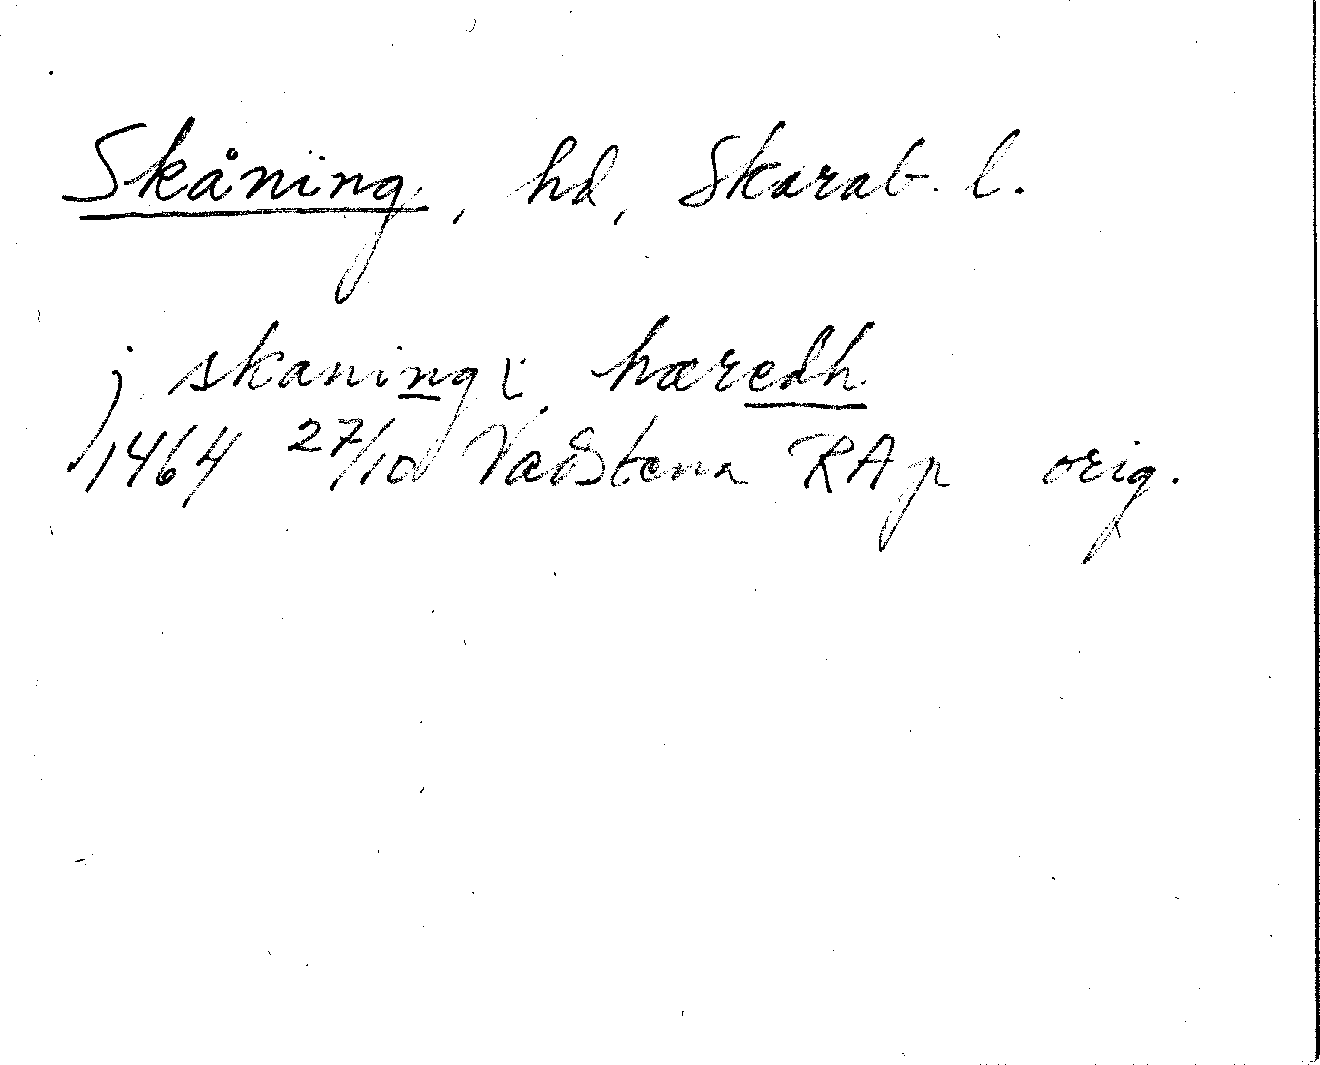 Skåning, hd, Skarab. l.
j skaningx hæredh
1464 27/10 Vadstena RAp orig.